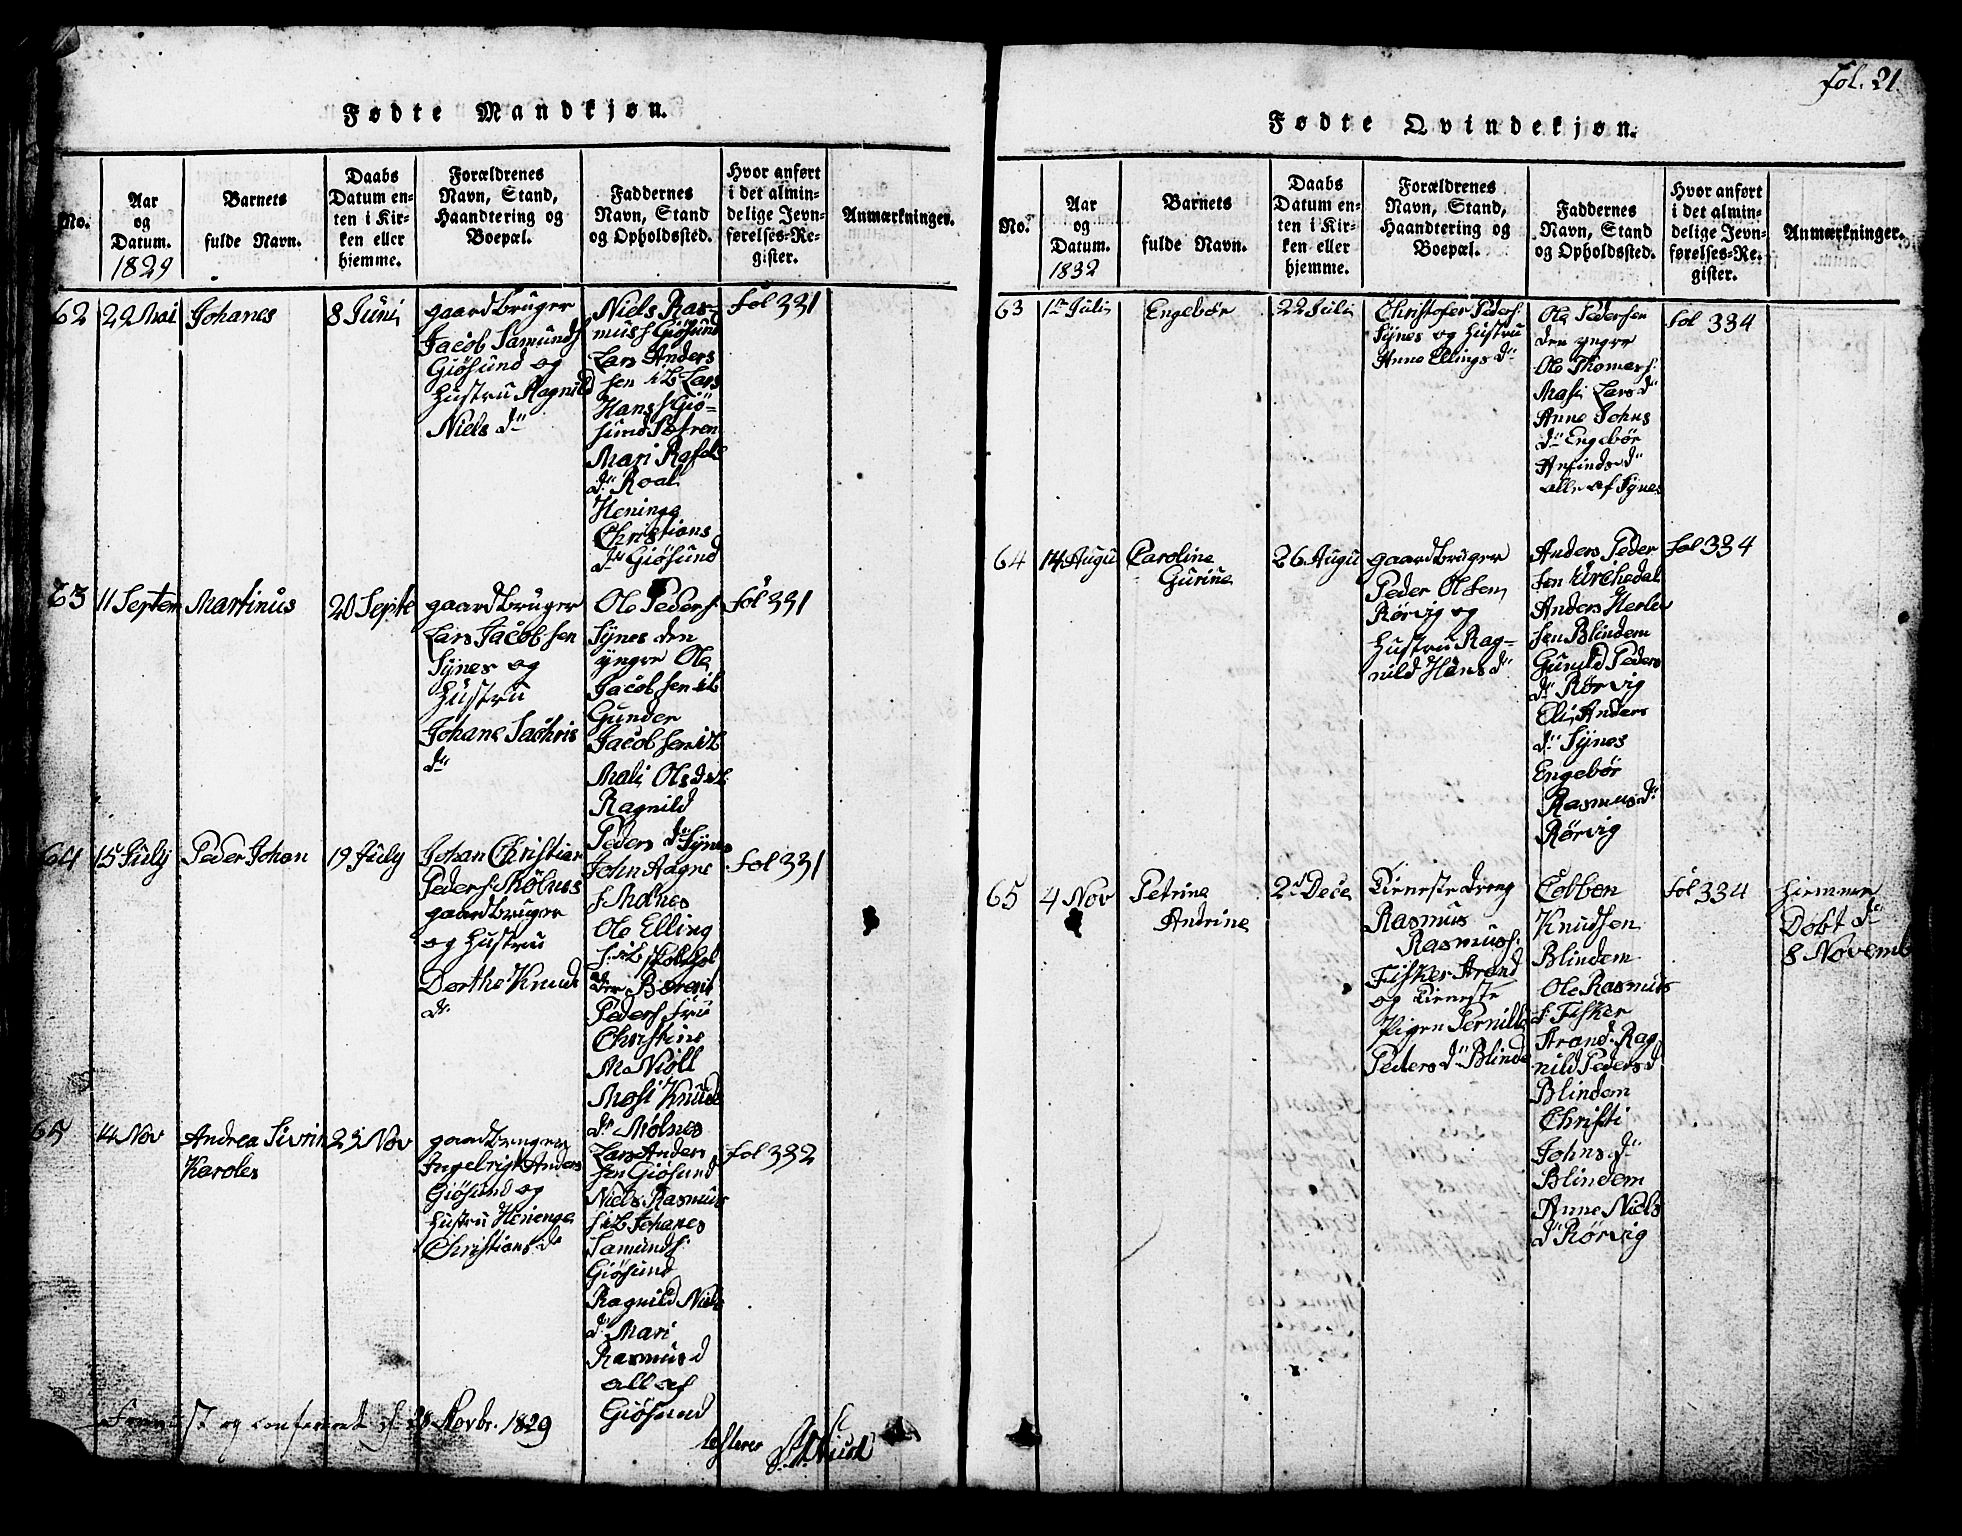 Fol. 21.
Fødte Mandkjøn.
No.
Aar
og
Datum.
1829
Barnets
fulde Navn.
Daabs
Datum en-
ten i Kir-
ken eller
hjemme.
Forældrenes
Navn, Stand,
Haandtering og
Boepæl.
Faddernes
Navn, Stand
og Opholdssted.
Hvor anført
i det almin-
delige Jevn-
førelses-Re-
gister.
Anmærkninger.
62
29 Mai
Johanes
8 Juni
gaardbruger
Jacob Samunds
Giøsund og
Hustru Ragnild
Niels dr
Niels Ras-
muss Giøsund
Lars Anders
sen ib Lars
Hans s Giø-
sund
Mari Rafels
dr Roal
Heninge
Christians
dr Giøsund
Fol 331
63
11 Septem
Martinus
20 Septe
gaardbruger
Lars Jacobsen
Synes og
Hustru
Johane Sachris
dr
Ole Peders:
Synes den
yngre Ole
Jacobsen ib
Gunder
Jacobsen ib
Mali Olsd ib
Ragnild
Peders dr Synes
Fol 331
64
15 July
Peder Johan
19 July
Johan Christian
Peders: Molnes
gaardbruger
og Hustru
Dorthe Knuds
dr
John Aagne
s Molnes
Ole Elling
s: ib Skolehol
der Berent
Peders Fru
Christine
M Niøll
Mosi Knuds
dr Molnes
Fol 331
65
14 Nov
Andrea Sivrin
Karoles
29 Nov
gaardbruger
Ingelrigt Anders
Giøsund og
Hustru Heninge
Christians dr
Lars Anders
sen Giøsund
Niels Rasmus
s ib Johanes
Samunds:
Giøsund
Ragnild Niels
dr Mari
Rasmus d
all af
Giøsund
Fol 332
og confereret d. 28 Novbr. 1829
Fødte Qvindekjøn.
No.
Aar
og
Datum.
1832
Barnets
fulde Navn.
Daabs
Datum en-
ten i Kir-
ken eller
hjemme.
Forældrenes
Navn, Stand,
Haandtering og
Boepæl.
Faddernes
Navn, Stand
og Opholdssted.
Hvor anført
i det almin-
delige Jevn-
førelses-Re-
gister.
Anmærkninger.
63
1te Juli
Engebør
22 Juli
Christofer Peders:
Synes og Hustru
Anne Ellings dr
Ole Pedersen
den yngre
Ole Thomas s:
Masi Lars dr
Anne Johns
dr Engebør
Anfinds dr
alle af Synes
Fol 334
64
14 Augu
Caroline
Gurine
26 Augu
gaardbruger
Peder Olsen
Rørvig og
Hustru Rag-
nild Hans dr
Anders Peder
sen Urkedal
Anders Herlev
sen Blindem
Gunild Peders
dr Rørvig
Eli Anders
dr Synes
Engebør
Rasmus dr
Rørvig
Fol 334
65
4 Nov
Petrine
Andrine
2d Dece
Tieneste dreng
Rasmus
Rasmuss:
Fisker Strand
og Tieneste
Pigen Pernille
Peders dr Blinde
Ebben
Knudsen
Blindem
Ole Rasmus
s: Fisker
Strand Rag
nild Peders d
Blindem
Christi
Johns dr
Blindem
Anne Niels
dr Rørvig
Fol 334
hiemme
Døbt d.
8 Novemb